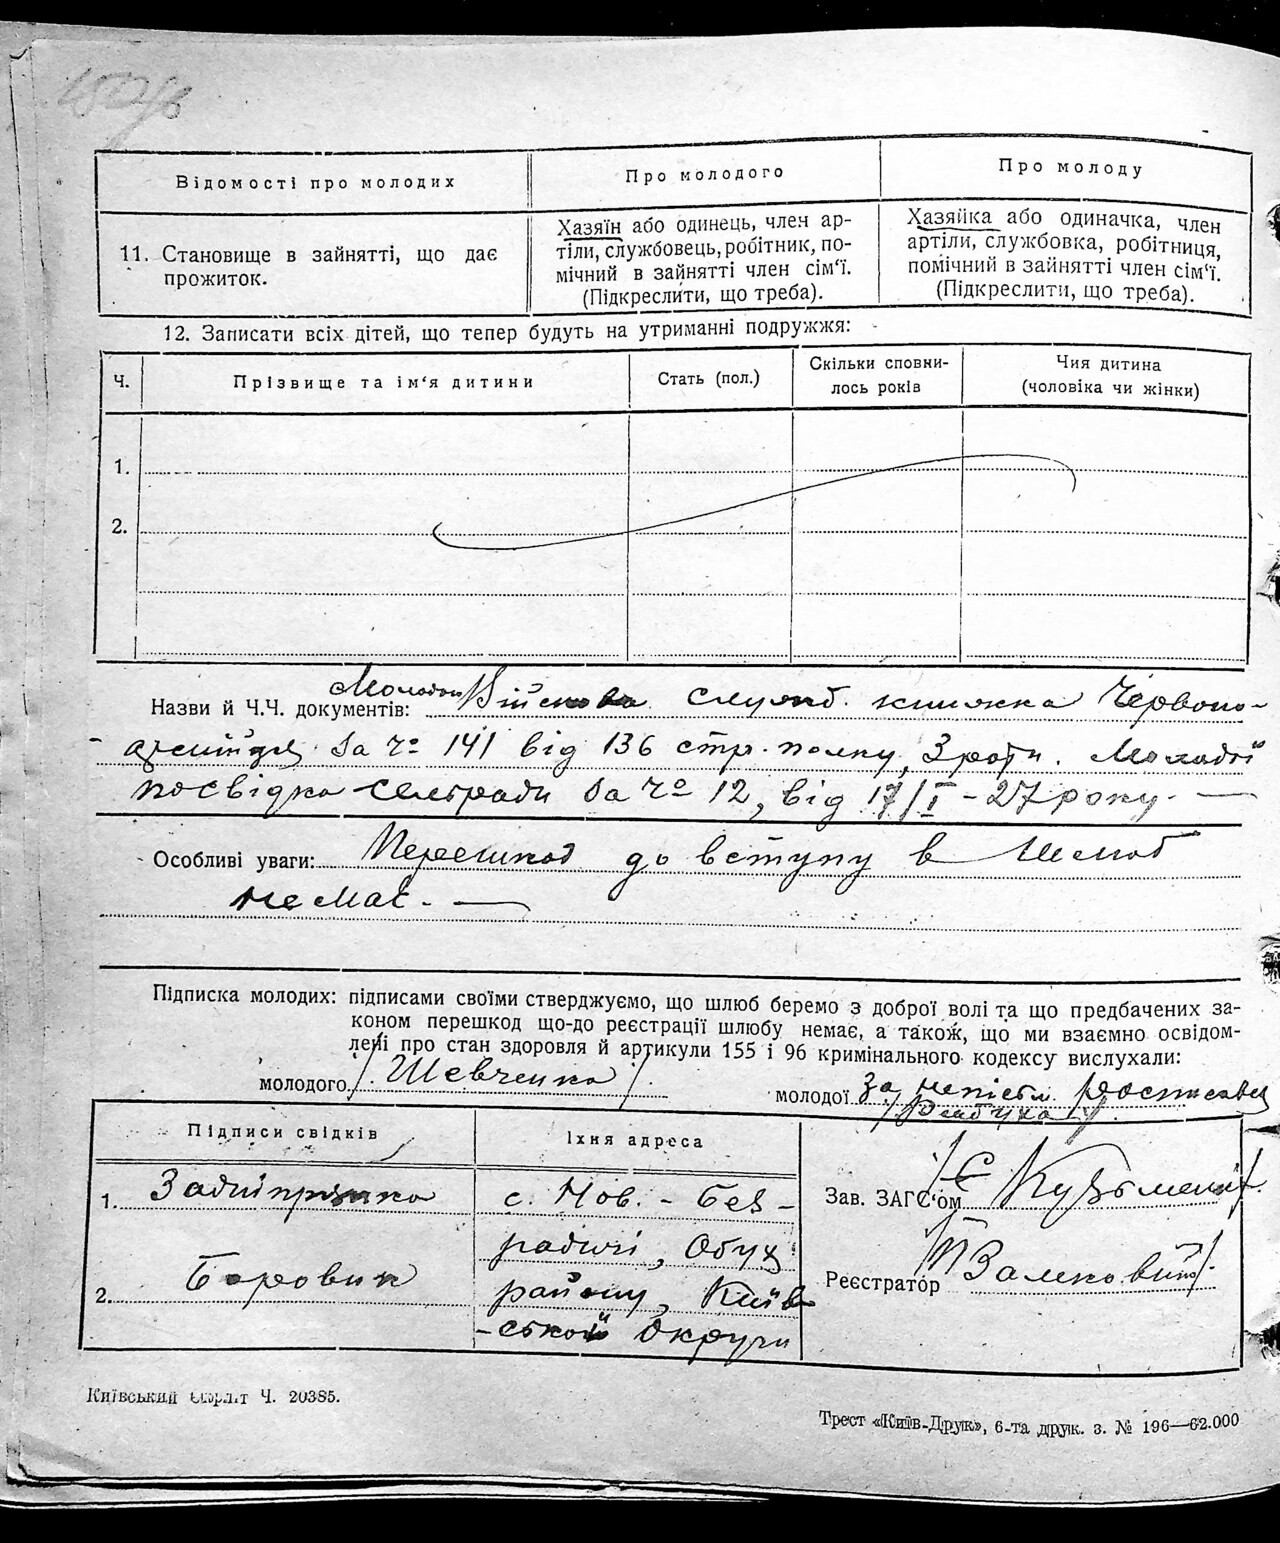 Відомості про молодих
Про молодого
Про молоду
11. Становище в зайнятті, що дає
прожиток.
Хазяїн або одинець, член ар-
тіли, службовець, робітник, по-
мічний в зайнятті член сім'ї.
(Підкреслити, що треба).
Хазяйка або одиначка, член
артіли, службовка, робітниця,
помічний в зайнятті член сім'ї.
(Підкреслити, що треба).
12. Записати всіх дітей, що тепер будуть на утриманні подружжя:
Ч.
Прізвище та ім'я дитини
Стать (пол.)
Скільки сповни-
лось років
Чия дитина
(чоловіка чи жінки)
1.
2.
Назви й Ч.Ч. документів: Військова служб. книжка Червоно-
за № 141 від 136 стр. полку, 3 роти. Молодої
посвідка сельради за № 12, від 17/I - 27 року. —
Особливі уваги: Перешкод до вступу в шлюб
немає. —
Підписка молодих: підписами своїми стверджуємо, що шлюб беремо з доброї волі та що предбачених за-
коном перешкод що-до реєстрації шлюбу немає, а також, що ми взаємно освідом-
лені про стан здоровля й артикули 155 і 96 кримінального кодексу вислухали:
молодого /Шевченко/
молодої За непісьм.
Підписи свідків
Їхня адреса
1. Задніпрянко
с. Нов. - Без-
радичі, Обух
2. Боровик
району, Київ
-ської округи
Зав. ЗАГС'ом
Реєстратор
Київський Окрліт Ч. 20385.
Трест «Київ-Друк», 6-та друк. з. № 196—62.000